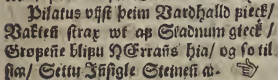 Pilatus vijst þeim Vardhalld þieck/
Vakteñ strax wt aþ Stadnum gieck/
Grøpeñe blifu HErrans hia/ og so til
sia/ Settu Jñsigle Steineñ a.